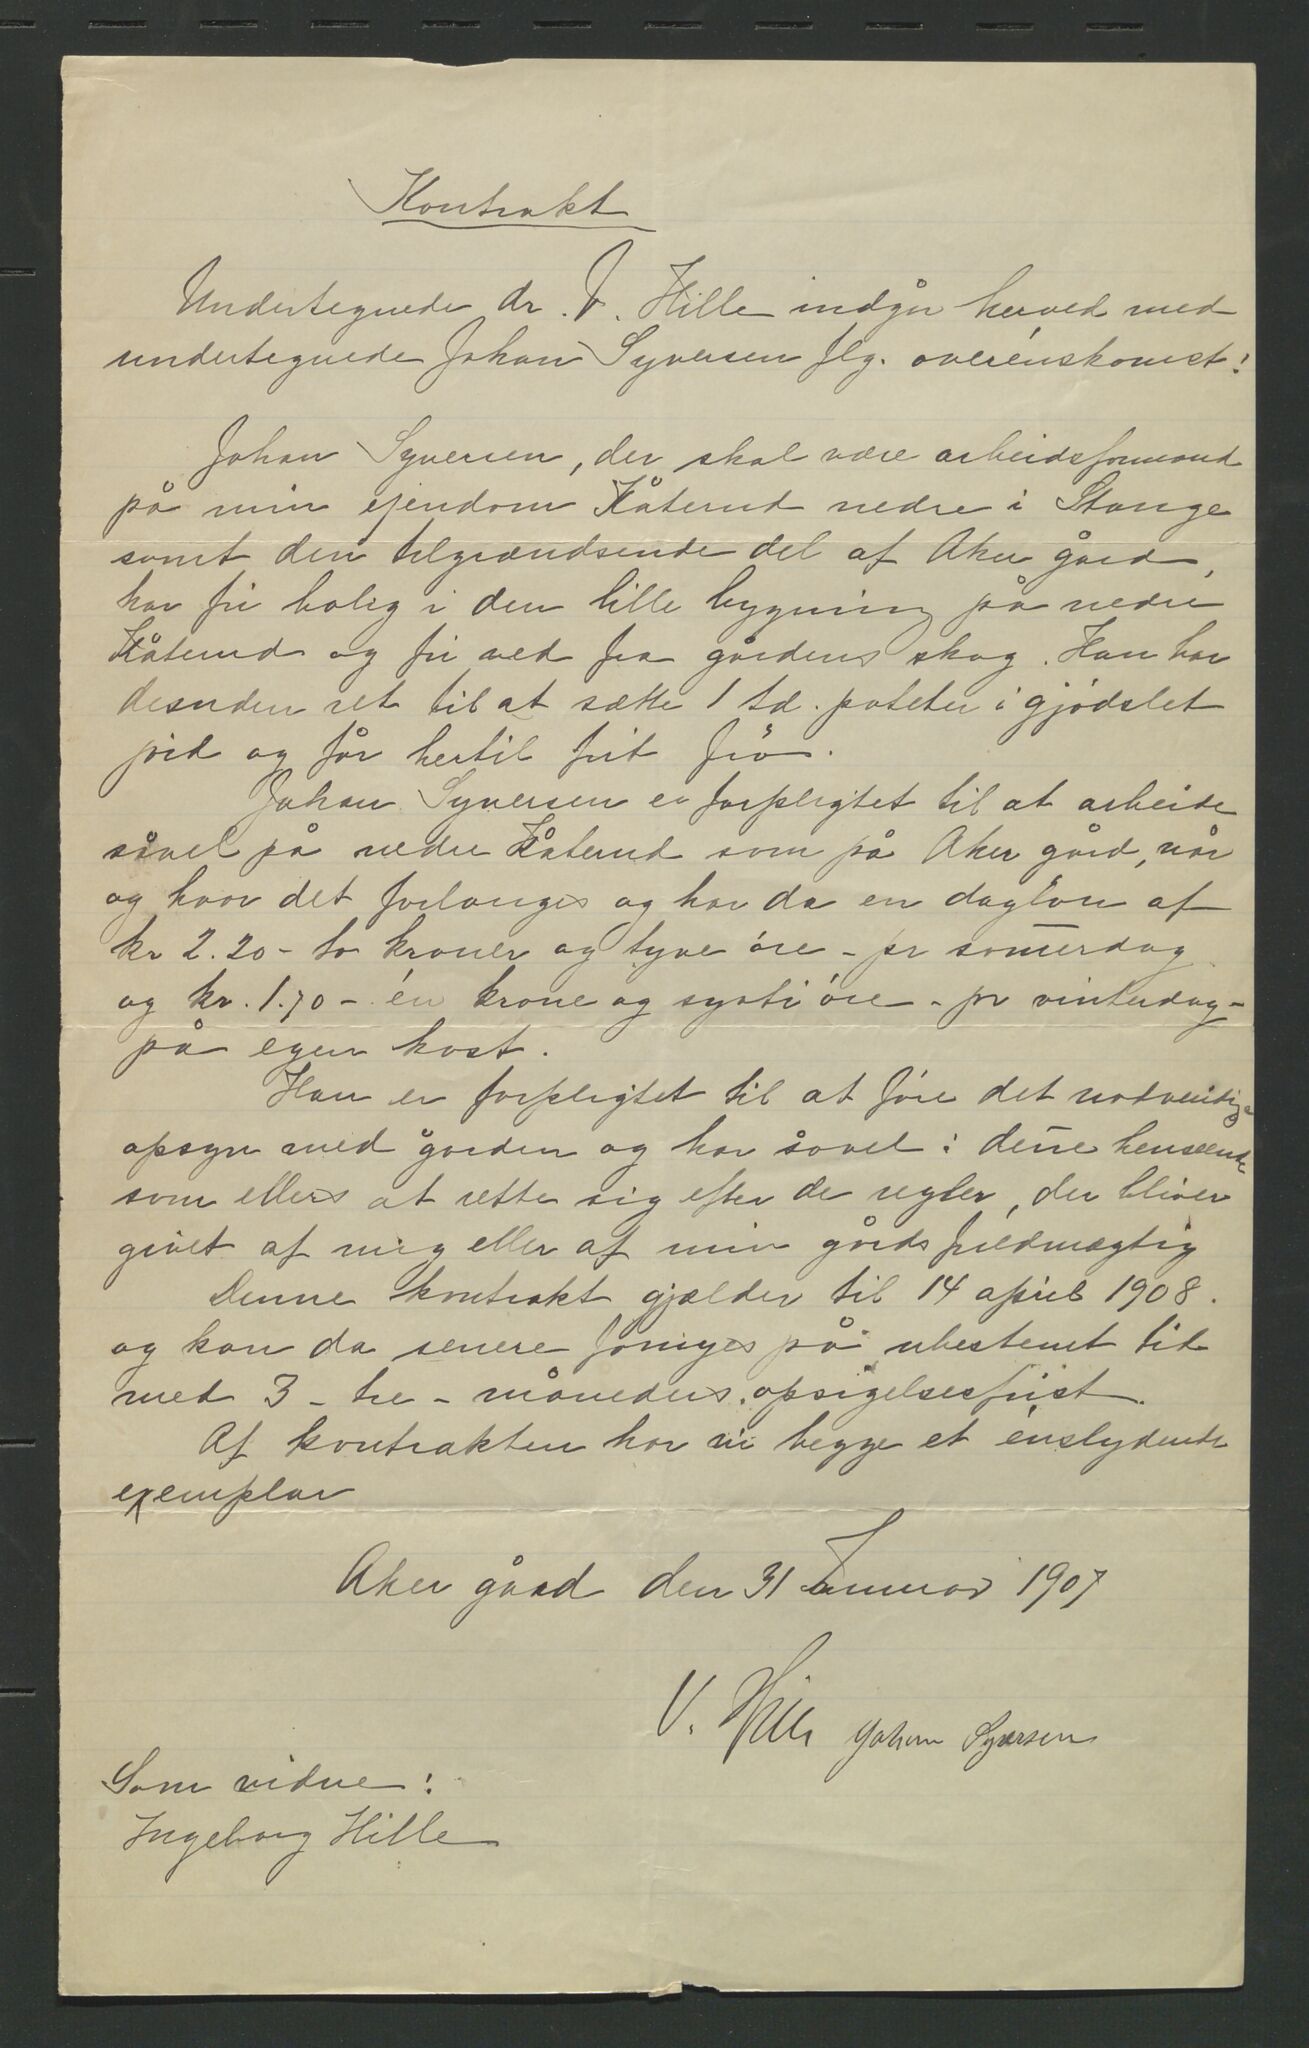 Kontrakt
Undertegnede dr. V. Hille indgår herved med
undertegnede Johan Syversen flg. overénskomst:
Johan Syversen, der skal være arbeidsformand
på min ejendom Kåterud nedre i Stange
samt den tilgrændsende del af Aker gård,
har fri bolig i den lille bygning på nedre
Kåterud og fri ved fra gårdens skog. Han har
desuden ret til at sætte 1 td. poteter i gjødslet
jord og får hertil frit frö.
Johan Syversen er forpligtet til at arbeide
såvel på nedre Kåterud som på Aker gård, når
og hvor det forlanges og har da en dagløn af
kr 2.20 - to kroner og tyve øre - pr som̅erdag
og kr. 1.70 - én krone og sytti øre - pr vinterdag -
på egen kost.
Han er forpligtet til at føre det nødvendige
opsyn med gården og har såvel i den̅e henseende
som ellers at rette sig efter de regler, der bliver
givet af mig eller af min gårdsfuldmægtig
Denne kontrakt gjælder til 14 april 1908.
og kan da senere fornyes på ubestemt tid
med 3 - tre - måneders opsigelsesfrist.
Af kontrakten har vi begge et énslydende
exemplar
Aker gård den 31 Januar 1907
V. Hille Johan Syversen
Som vidne:
Ingeborg Hille